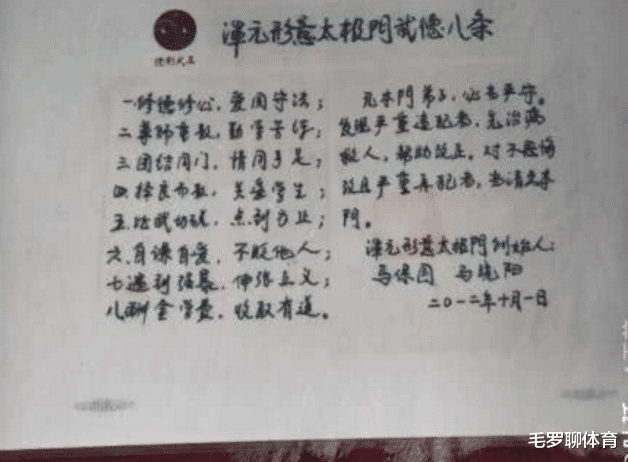 渾元形意太极門武德八条
德形武名
一.修德修心，爱国守法；
二.尊师重教，勤学苦练；
三.团结同门，情同手足；
四.择良而教，关爱学生；
五.比武切磋，点到为止；
六.自谦自爱，不贬他人；
七.遇到强暴，伸张正义；
八.酬金学费，收取有道。
凡本門弟子，必当严守。
发现严重违犯者，先治病
救人，帮助改正。对不悔
改且严重再犯者，当清出本
門。
渾元形意太极門创始人：
马保国 马晓阳
二〇一二年十月一日
毛罗聊体育